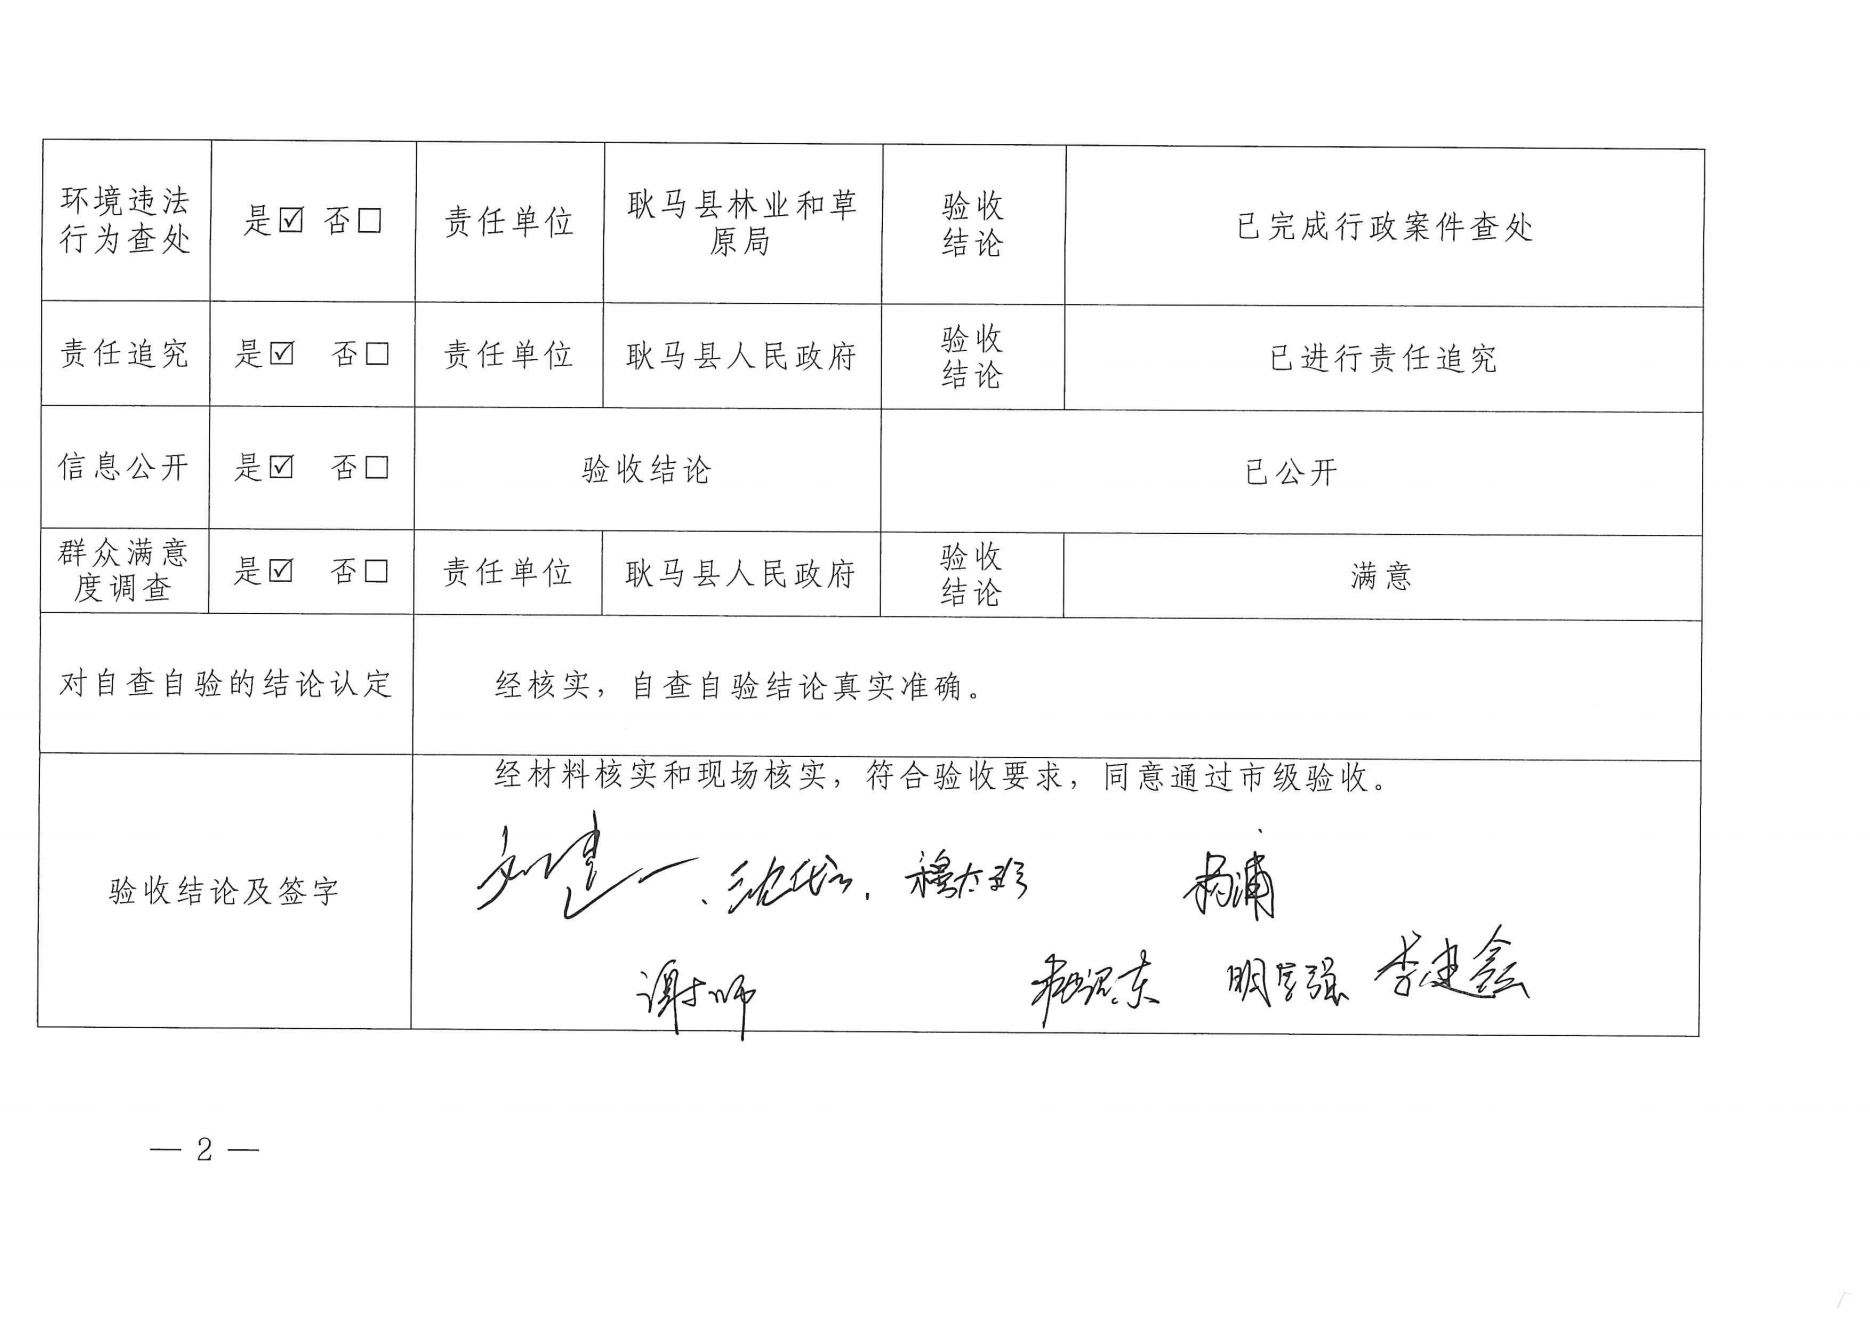 环境违法
行为查处
是☑ 否□
责任单位
耿马县林业和草
原局
验收
结论
已完成行政案件查处
责任追究
是☑ 否□
责任单位
耿马县人民政府
验收
结论
已进行责任追究
信息公开
是☑ 否□
验收结论
已公开
群众满意
度调查
是☑ 否□
责任单位
耿马县人民政府
验收
结论
满意
对自查自验的结论认定
经核实，自查自验结论真实准确。
验收结论及签字
经材料核实和现场核实，符合验收要求，同意通过市级验收。
杨浦
李建鑫
— 2 —